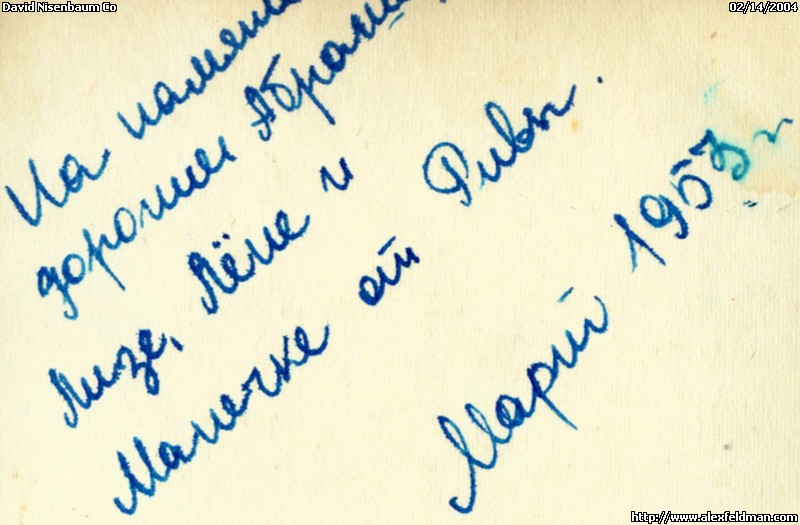 David Nisenbaum Co
02/14/2004
На память
дорогим Абраше,
Лизе, Лёне и
Манечке от Ривы.
Март 1953 г
http://www.alexfeldman.com